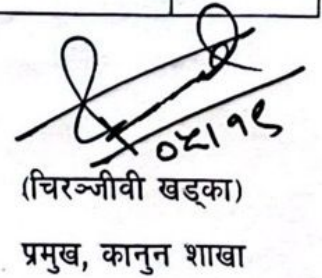 ०५।१९
(चिरञ्जीवी खड्का)
प्रमुख, कानुन शाखा